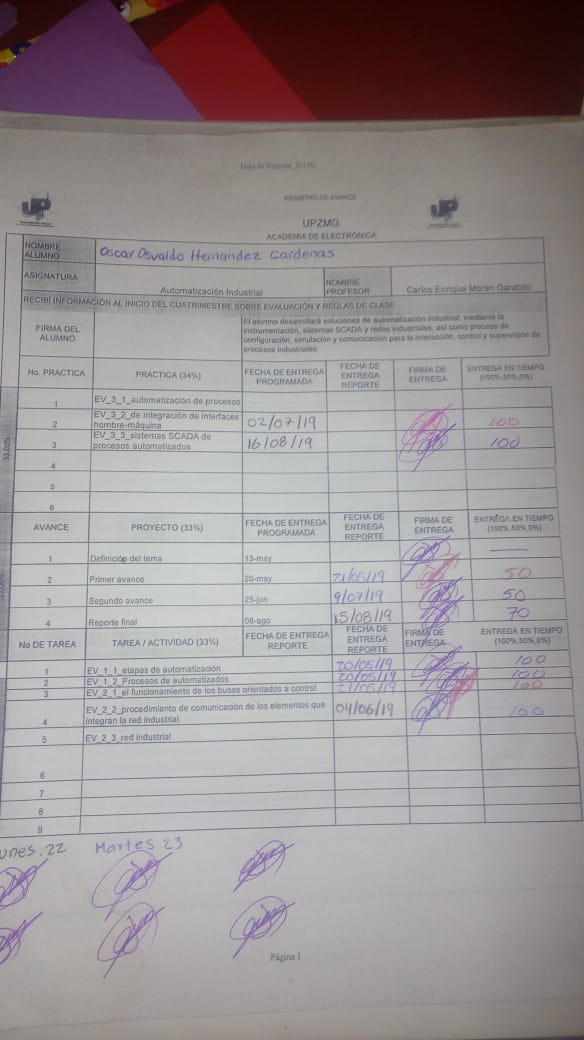 Hoja de Registro_2019b
REGISTRO DE AVANCE
UP UPZMG UP
ACADEMIA DE ELECTRÓNICA
NOMBRE ALUMNO Oscar Osvaldo Hernandez Cardenas
ASIGNATURA Automatización Industrial NOMBRE PROFESOR Carlos Enrique Morán Garabito
RECIBÍ INFORMACIÓN AL INICIO DEL CUATRIMESTRE SOBRE EVALUACIÓN Y REGLAS DE CLASE
FIRMA DEL ALUMNO El alumno desarrollará soluciones de automatización industrial, mediante la
instrumentación, sistemas SCADA y redes industriales, así como proceso de
configuración, simulación y comunicación para la interacción, control y supervisión de
procesos industriales.
No. PRACTICA PRÁCTICA (34%) FECHA DE ENTREGA PROGRAMADA FECHA DE ENTREGA REPORTE FIRMA DE ENTREGA ENTREGA EN TIEMPO (100%,50%,0%)
1 EV_3_1_automatización de procesos
2 EV_3_2_de integración de interfaces hombre-máquina 02/07/19 100
3 EV_3_3_sistemas SCADA de procesos automatizados 16/08/19 100
4
5
6
33.00%
AVANCE PROYECTO (33%) FECHA DE ENTREGA PROGRAMADA FECHA DE ENTREGA REPORTE FIRMA DE ENTREGA ENTREGA EN TIEMPO (100%,50%,0%)
1 Definición del tema 13-may
2 Primer avance 20-may 21/05/19 50
3 Segundo avance 25-jun 9/07/19 50
4 Reporte final 08-ago 15/08/19 70
No DE TAREA TAREA / ACTIVIDAD (33%) FECHA DE ENTREGA REPORTE FECHA DE ENTREGA REPORTE FIRMA DE ENTREGA ENTREGA EN TIEMPO (100%,50%,0%)
1 EV_1_1_etapas de automatización 20/05/19 100
2 EV_1_2_Procesos de automatizados 20/05/19 100
3 EV_2_1_el funcionamiento de los buses orientados a control 21/05/19 100
4 EV_2_2_procedimiento de comunicación de los elementos que integran la red industrial. 04/06/19 100
5 EV_2_3_red industrial
6
7
8
9
unes.22 Martes 23
Página 1